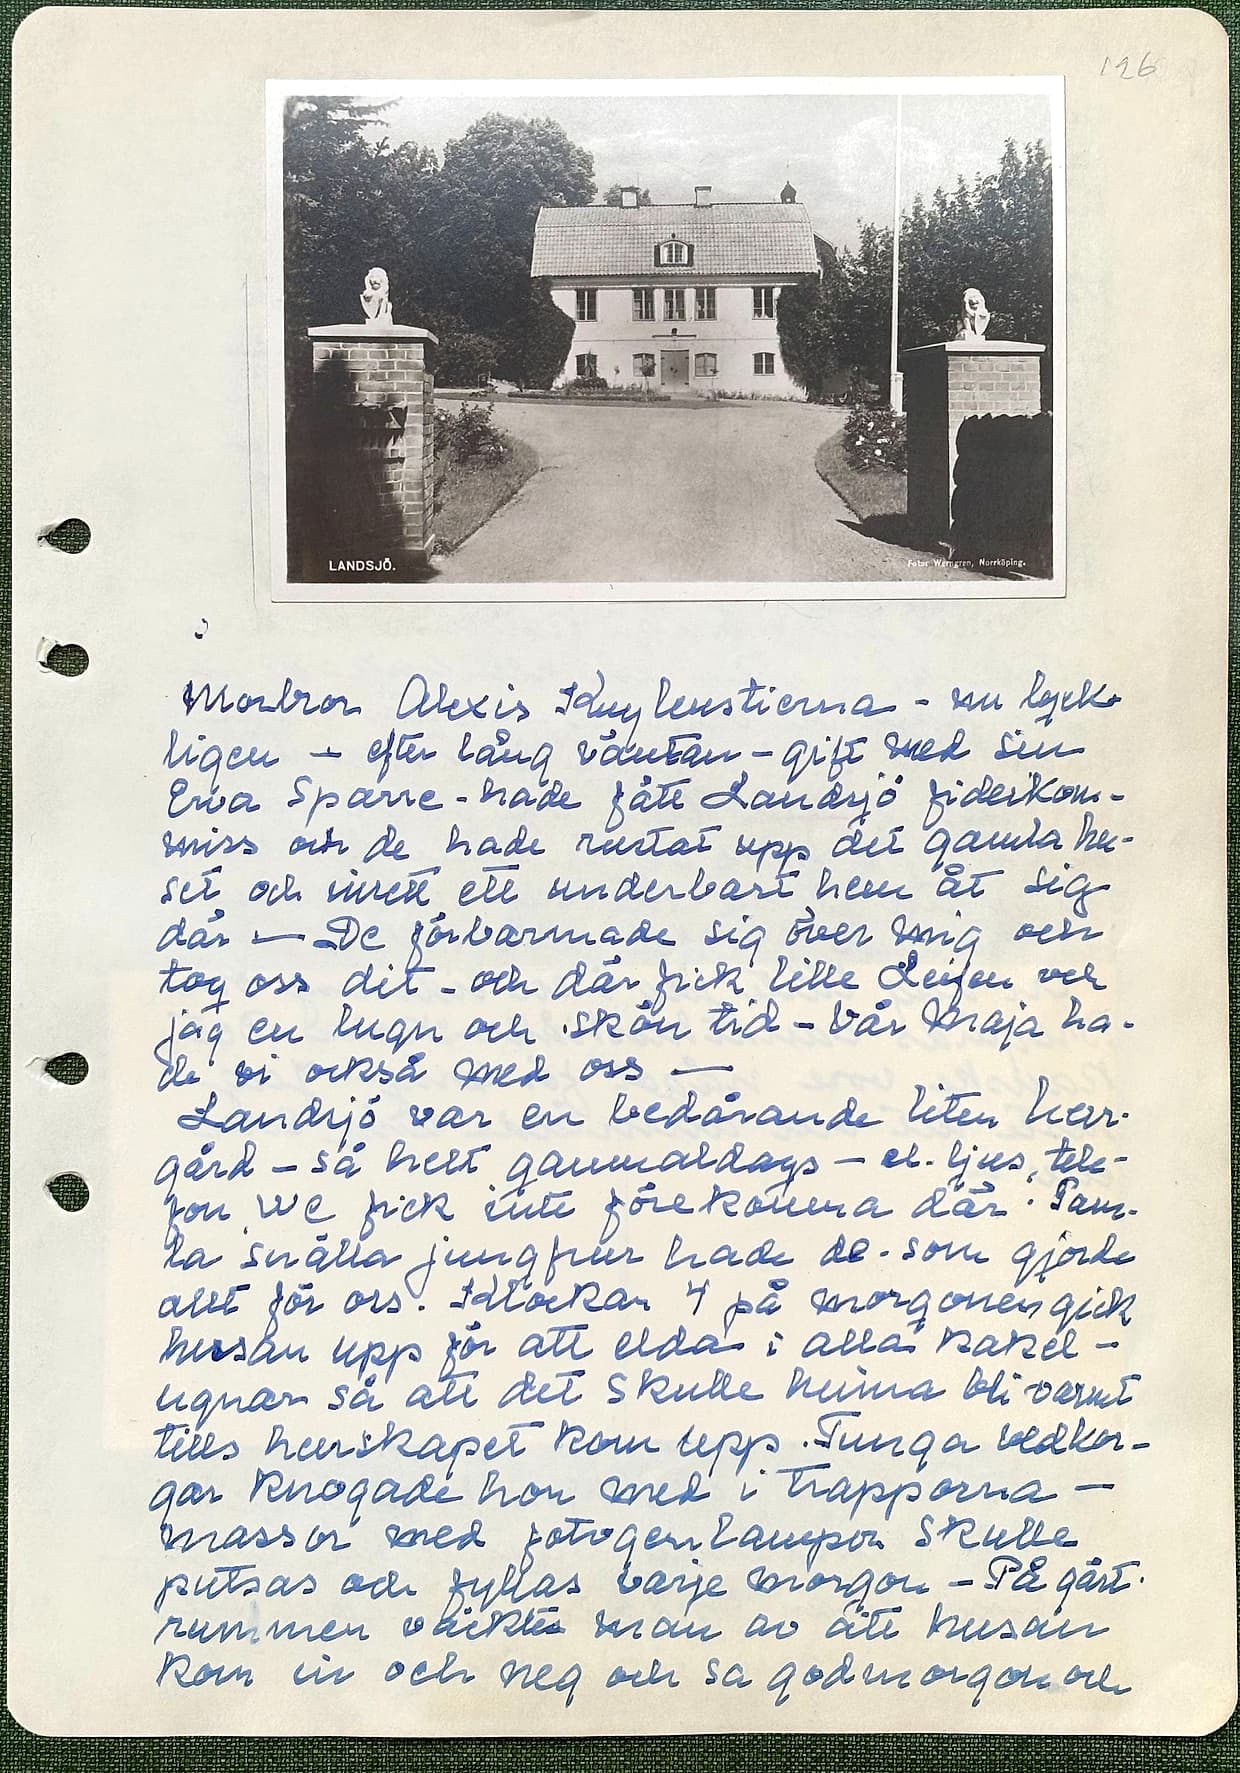 126
LANDSJÖ.
Foto: Werngren, Norrköping.
Morbror Alexis Kuylenstierna - nu lyck-
ligen - efter lång väntan - gift med sin
Ewa Sparre - hade fått Landsjö fideikom-
miss och de hade rustat upp det gamla hu-
set och inrett ett underbart hem åt sig
där — De förbarmade sig över mig och
tog oss dit - och där fick lille Leifen och
jag en lugn och skön tid - Vår Maja ha-
de vi också med oss —
Landsjö var en bedårande liten herr-
gård - så helt gammaldags - el. ljus, tele-
fon, WC fick inte förekomma där.
ta snälla jungfrur hade de - som gjorde
allt för oss. Klockan 4 på morgonen gick
husan upp för att elda i alla kakel-
ugnar så att det skulle hinna bli varmt
tills herrskapet kom upp. Tunga vedkor-
gar knogade hon med i trapporna —
massor med fotogenlampor skulle
putsas och fyllas varje morgon - På gäst-
rummen väcktes man av att husan
kom in och neg och sa godmorgon och